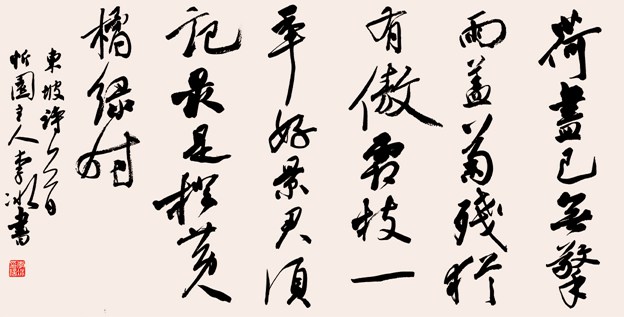 荷盡已無擎
雨蓋菊殘犹
有傲霜枝一
年好景君須
記最是橙黄
橘緑时
東坡詩一首
園主人李冰書